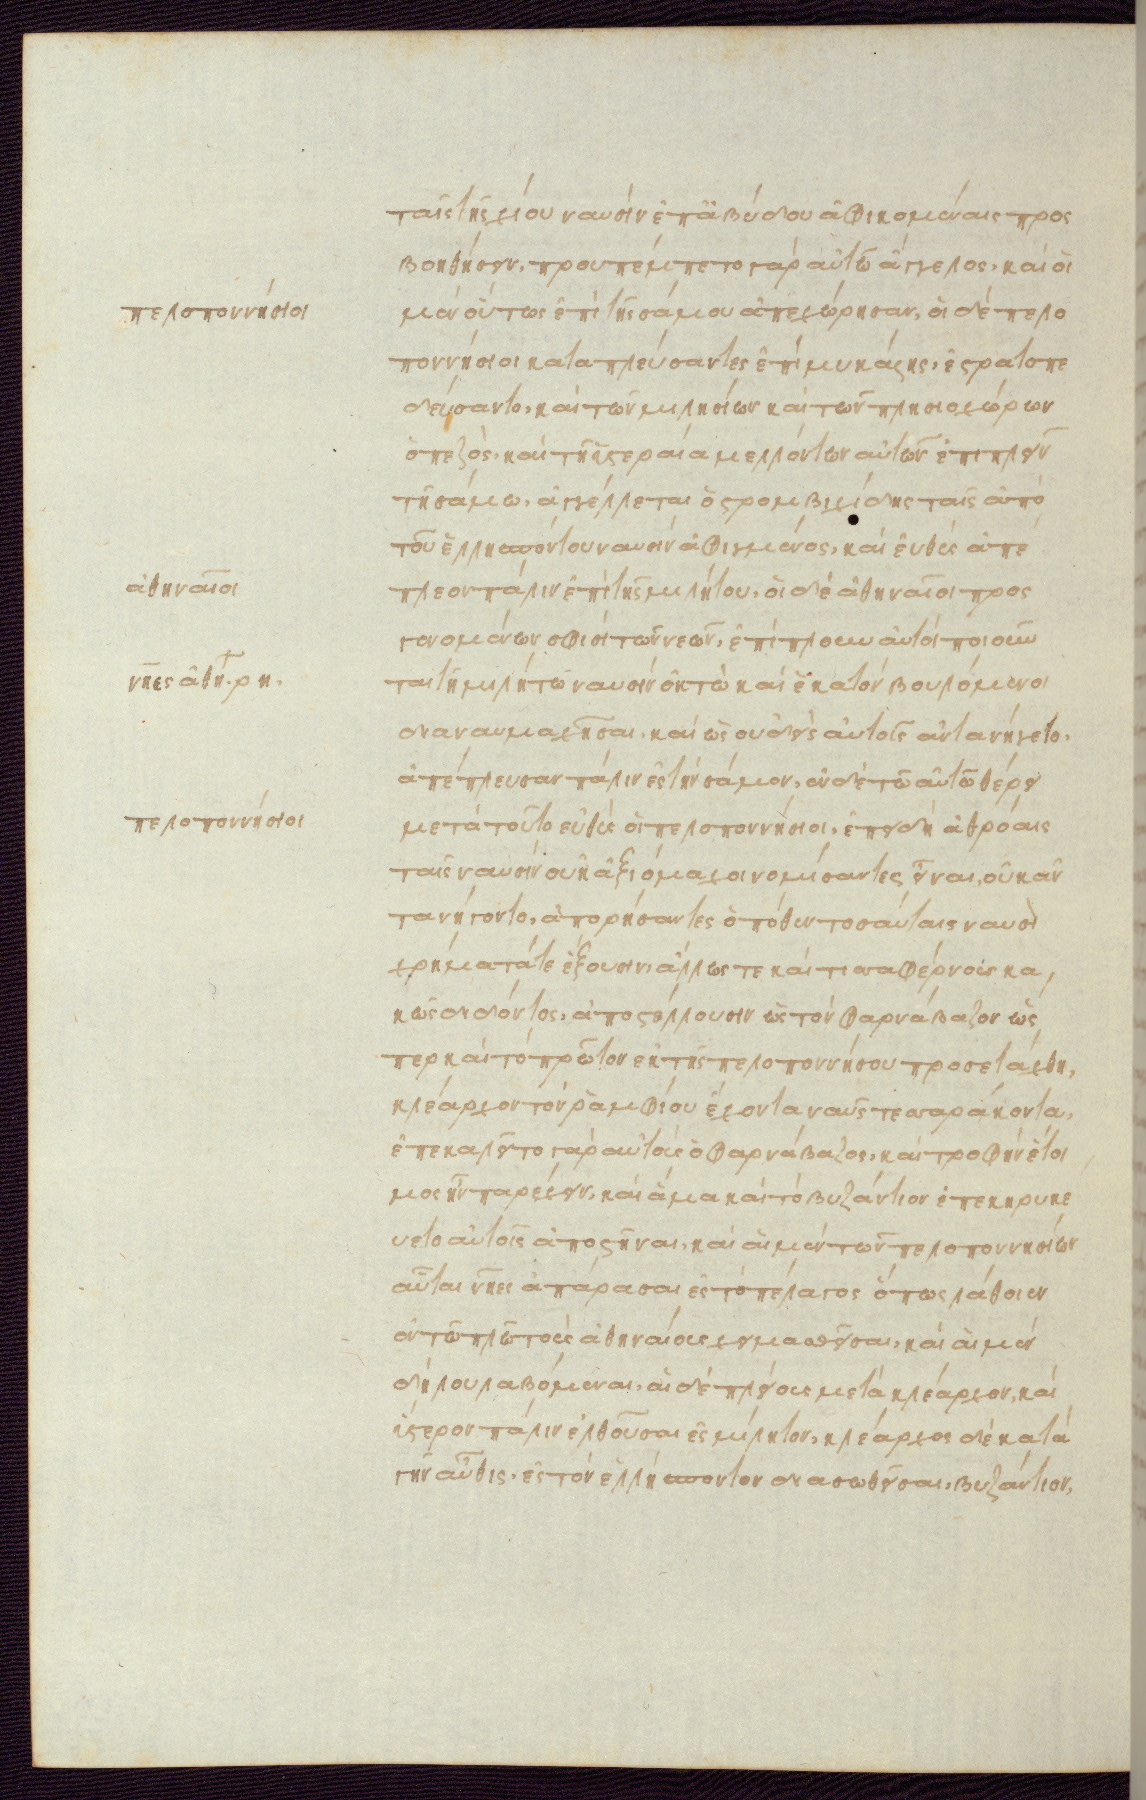 ταῖς τῆς χίου ναυσὶν ἐπ ἀβύδου ἀφικομέναις προς
βοηθήσειν, προυπέμπετο γὰρ αὐτῶ ἄγγελος, καὶ οἱ
πελοποννήσιοι
μὲν οὕτως ἐπὶ τῆς σάμου ἀπεχώρησαν, οἱ δὲ πελο
ποννήσιοι καταπλεύσαντες ἐπὶ μυκάλης, ἐστρατοπε
δεύσαντο, καὶ τῶν μιλησίων καὶ τῶν πλησιοχώρων
ὁ πεζὸς, καὶ τῆ ὑστεραία μελλόντων αὐτῶν ἐπιπλεῖν
τῆ σάμω, ἀγγέλλεται ὁ στρομβιχίδης ταῖς ἀπὸ
τοῦ ἑλλησπόντου ναυσὶν ἀφιγμένος, καὶ εὐθὺς ἀπέ
ἀθηναῖοι
πλεον πάλιν ἐπὶ τῆς μιλήτου, οἱ δὲ ἀθηναῖοι προς
γενομένων σφίσι τῶν νεῶν, ἐπίπλουν αὐτοὶ ποιοῦν
νῆες ἀθη. ρη.
ται τῆ μιλήτω ναυσὶν ὀκτὼ καὶ ἑκατὸν βουλόμενοι
διαναυμαχῆσαι, καὶ ὡς οὐδεὶς αὐτοῖς ἀντανήγετο,
ἀπέπλευσαν πάλιν ἐς τὴν σάμον, ἐν δὲ τῶ αὐτῶ θέρει
πελοποννήσιοι
μετὰ τοῦτο εὐθὺς οἱ πελοποννήσιοι, ἐπειδὴ ἀθρόαις
ταῖς ναυσὶν οὐκ ἀξιόμαχοι νομίσαντες εἶναι, οὐκ ἀν
τανήγοντο, ἀπορήσαντες ὁπόθεν τοσαύταις ναυσὶ
χρήματά τε ἕξουσιν, ἄλλως τε καὶ τισσαφέρνους κα
κῶς διδόντος, ἀποστέλλουσιν ὡς τὸν φαρνάβαζον ὥς
περ καὶ τὸ πρῶτον ἐκ τῆς πελοποννήσου προσετάχθη,
κλέαρχον τὸν ῥαμφίου ἔχοντα ναῦς τεσσαράκοντα,
ἐπεκαλεῖτο γὰρ αὐτοὺς ὁ φαρνάβαζος, καὶ τροφὴν ἕτοι
μος ἦν παρέχειν, καὶ ἅμα καὶ τὸ βυζάντιον ἐπεκηρυκε
ύετο αὐτοῖς ἀποστῆναι, καὶ αἱ μὲν τῶν πελοποννησίων
αὗται νῆες ἀπάρασαι ἐς τὸ πέλαγος ὅπως λάθοιεν
ἐν τῶ πλῶ τοὺς ἀθηναίους χειμασθεῖσαι, καὶ αἱ μὲν
δήλου λαβόμεναι, αἱ δὲ πλείους μετὰ κλέαρχον, καὶ
ὕστερον πάλιν ἐλθοῦσαι ἐς μίλητον, κλέαρχος δὲ κατὰ
γῆν αὖθις, ἐς τὸν ἑλλήσποντον διασωθεῖσαι, βυζάντιον,